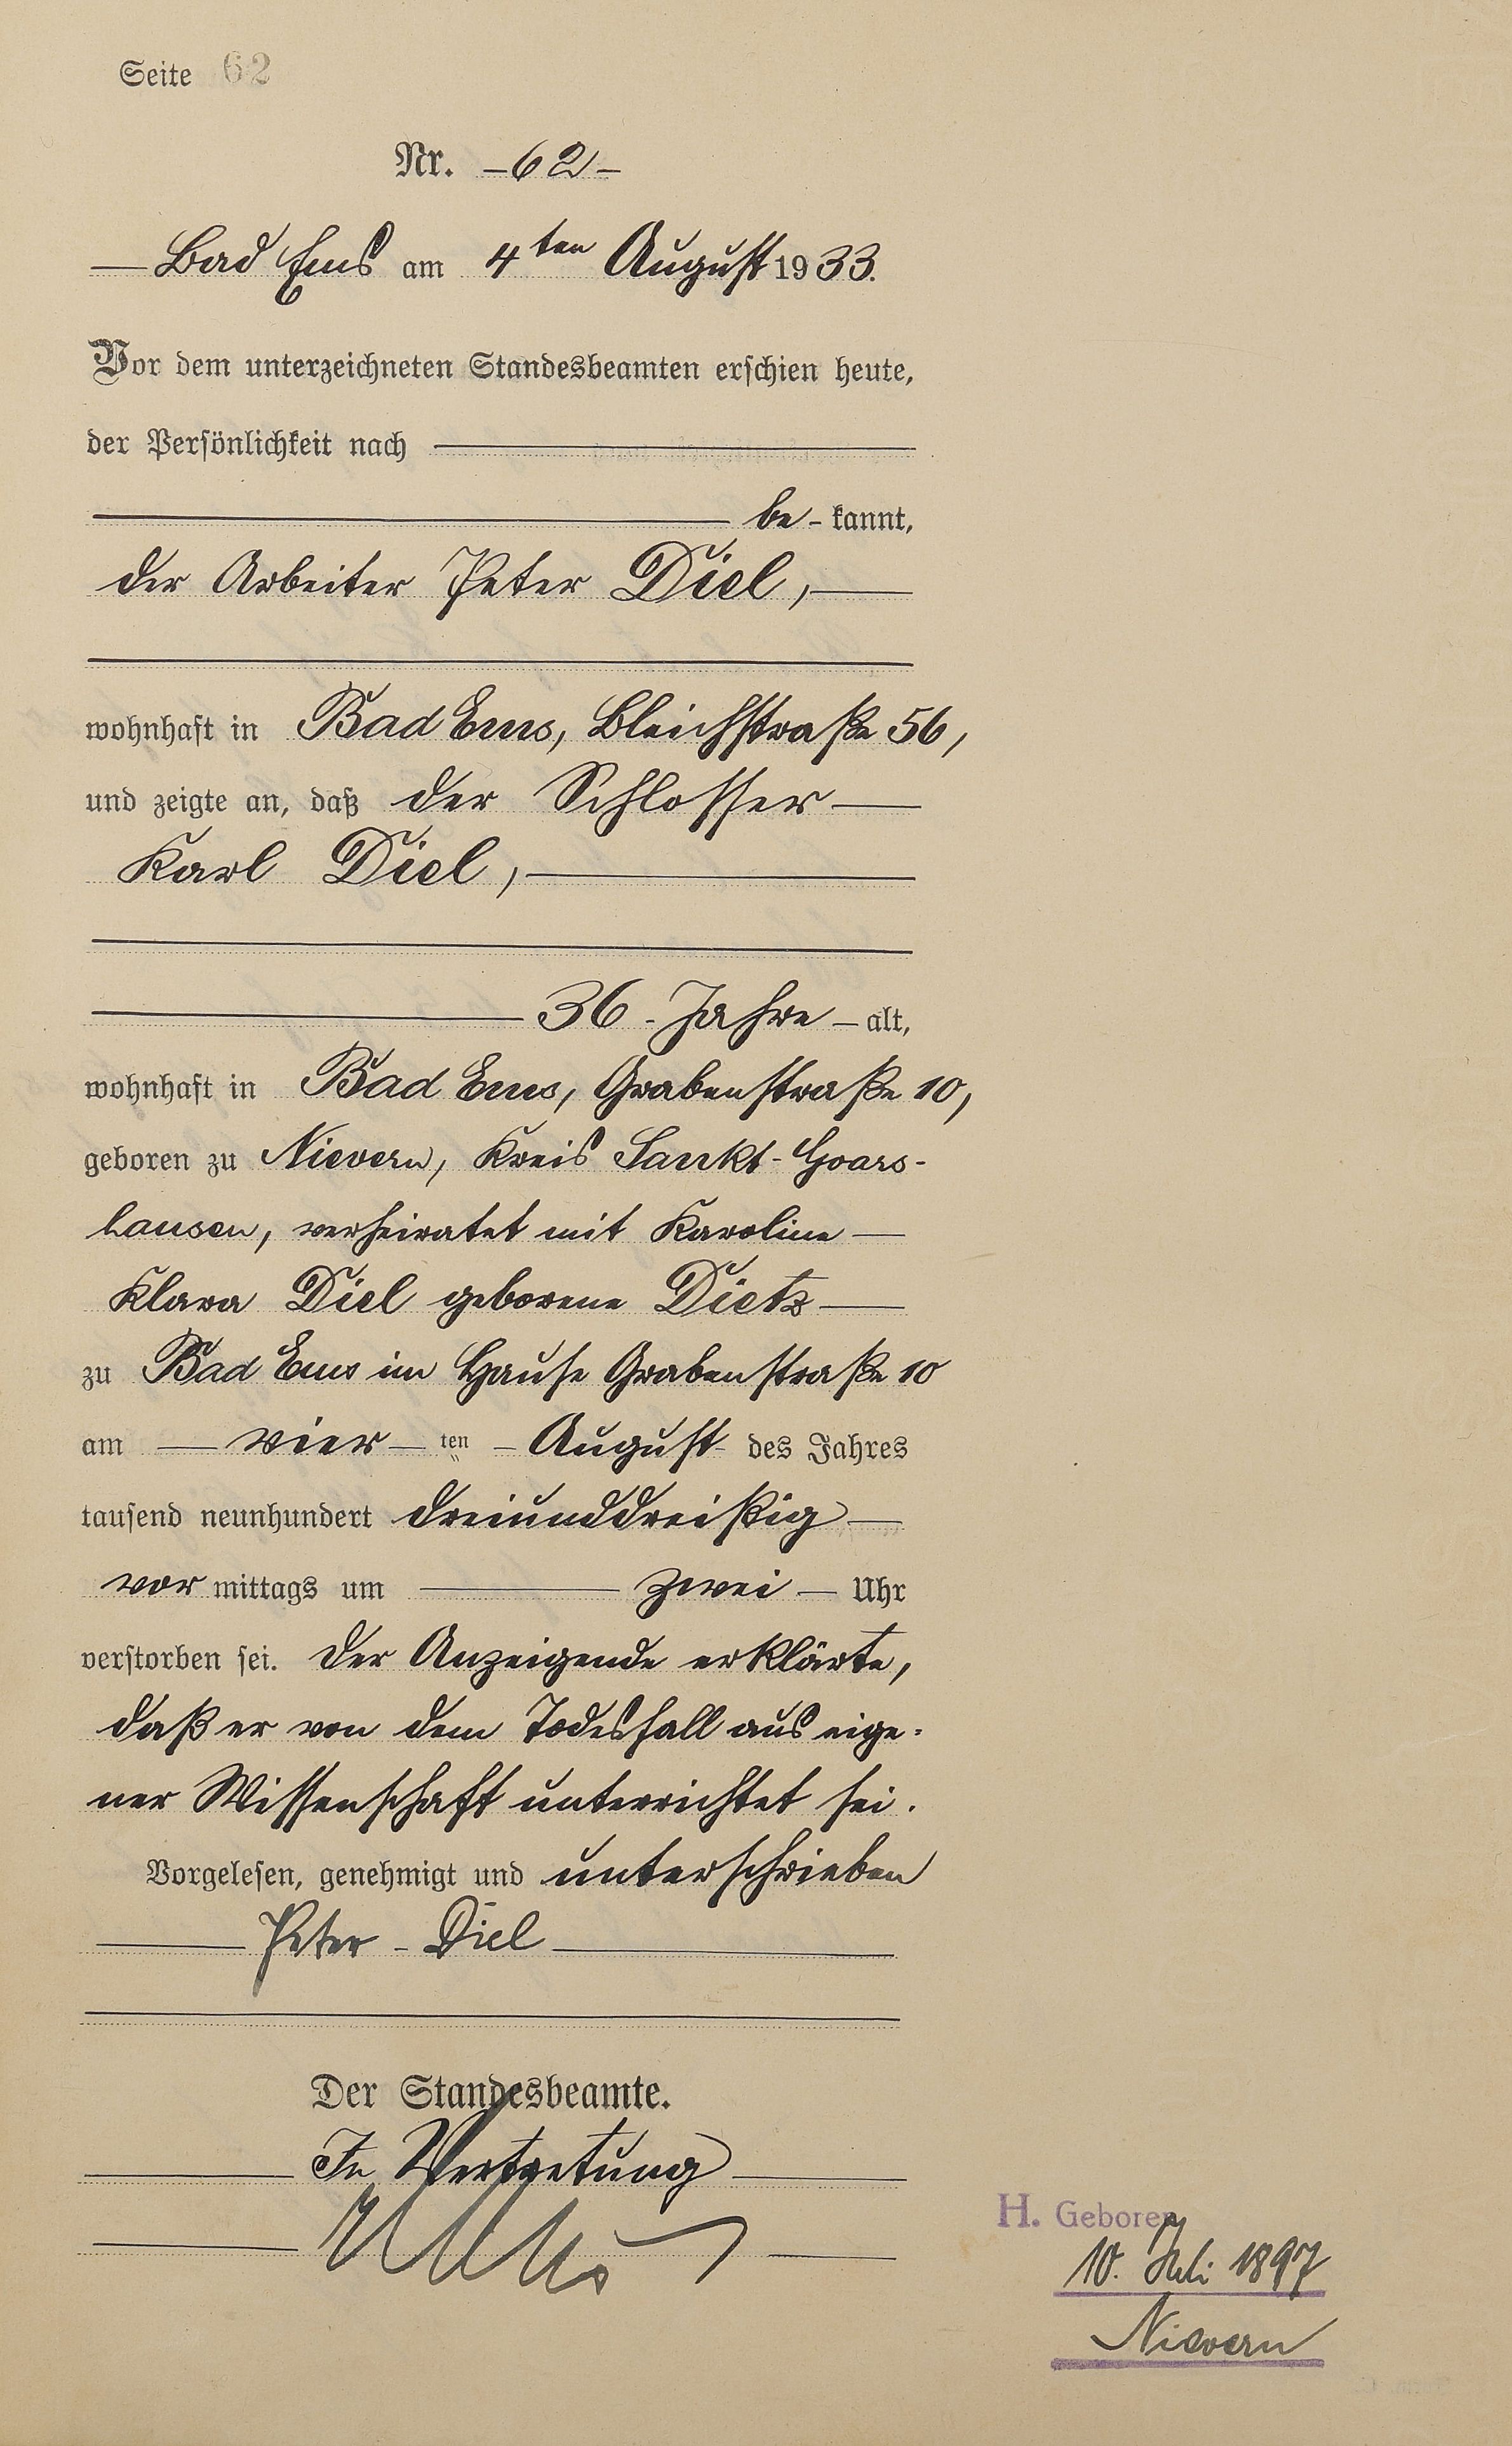 Seite 62
Nr. -62-
Bad Ems am 4ten August 1933.
Vor dem unterzeichneten Standesbeamten erschien heute,
der Persönlichkeit nach
be-kannt,
der Arbeiter Peter Diel,
wohnhaft in Bad Ems, Bleichstraße 56,
und zeigte an, daß der Schlosser
Karl Diel,
36 - Jahre - alt,
wohnhaft in Bad Ems, Grabenstraße 10,
geboren zu Nievern, Kreis Sankt-Goars-
hausen, verheiratet mit Karoline
Klara Diel geborene Dietz
zu Bad Ems im Hause Grabenstraße 10
am vier ten August des Jahres
tausend neunhundert dreiunddreißig
vor mittags um zwei Uhr
verstorben sei. Der Anzeigende erklärte,
daß er von dem Todesfall aus eige-
ner Wissenschaft unterrichtet sei.
Vorgelesen, genehmigt und unterschrieben
Peter - Diel
Der Standesbeamte.
In Vertretung
H. Geboren
10. Juli 1897
Nievern